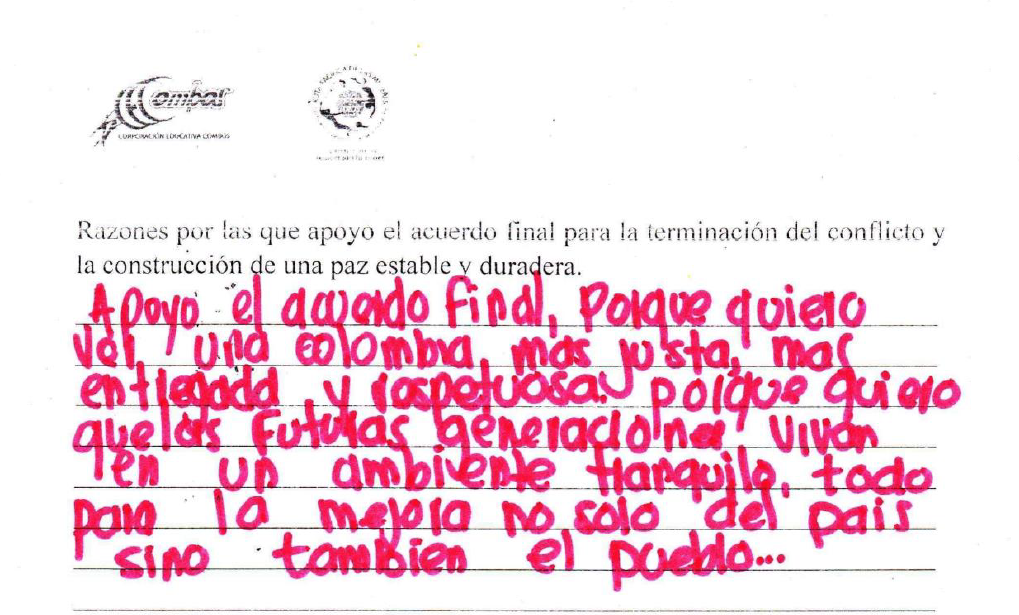 Combos
CORPORACIÓN EDUCATIVA COMBOS
Razones por las que apoyo el acuerdo final para la terminación del conflicto y
la construcción de una paz estable y duradera.
Apoyo el acuerdo final, porque quiero
ver, una colombia, mas justa, mas
entregada y respetuosa porque quiero
que las futuras generaciones vivan
en un ambiente tranquilo, todo
para la mejora no solo del pais
sino tambien el pueblo...